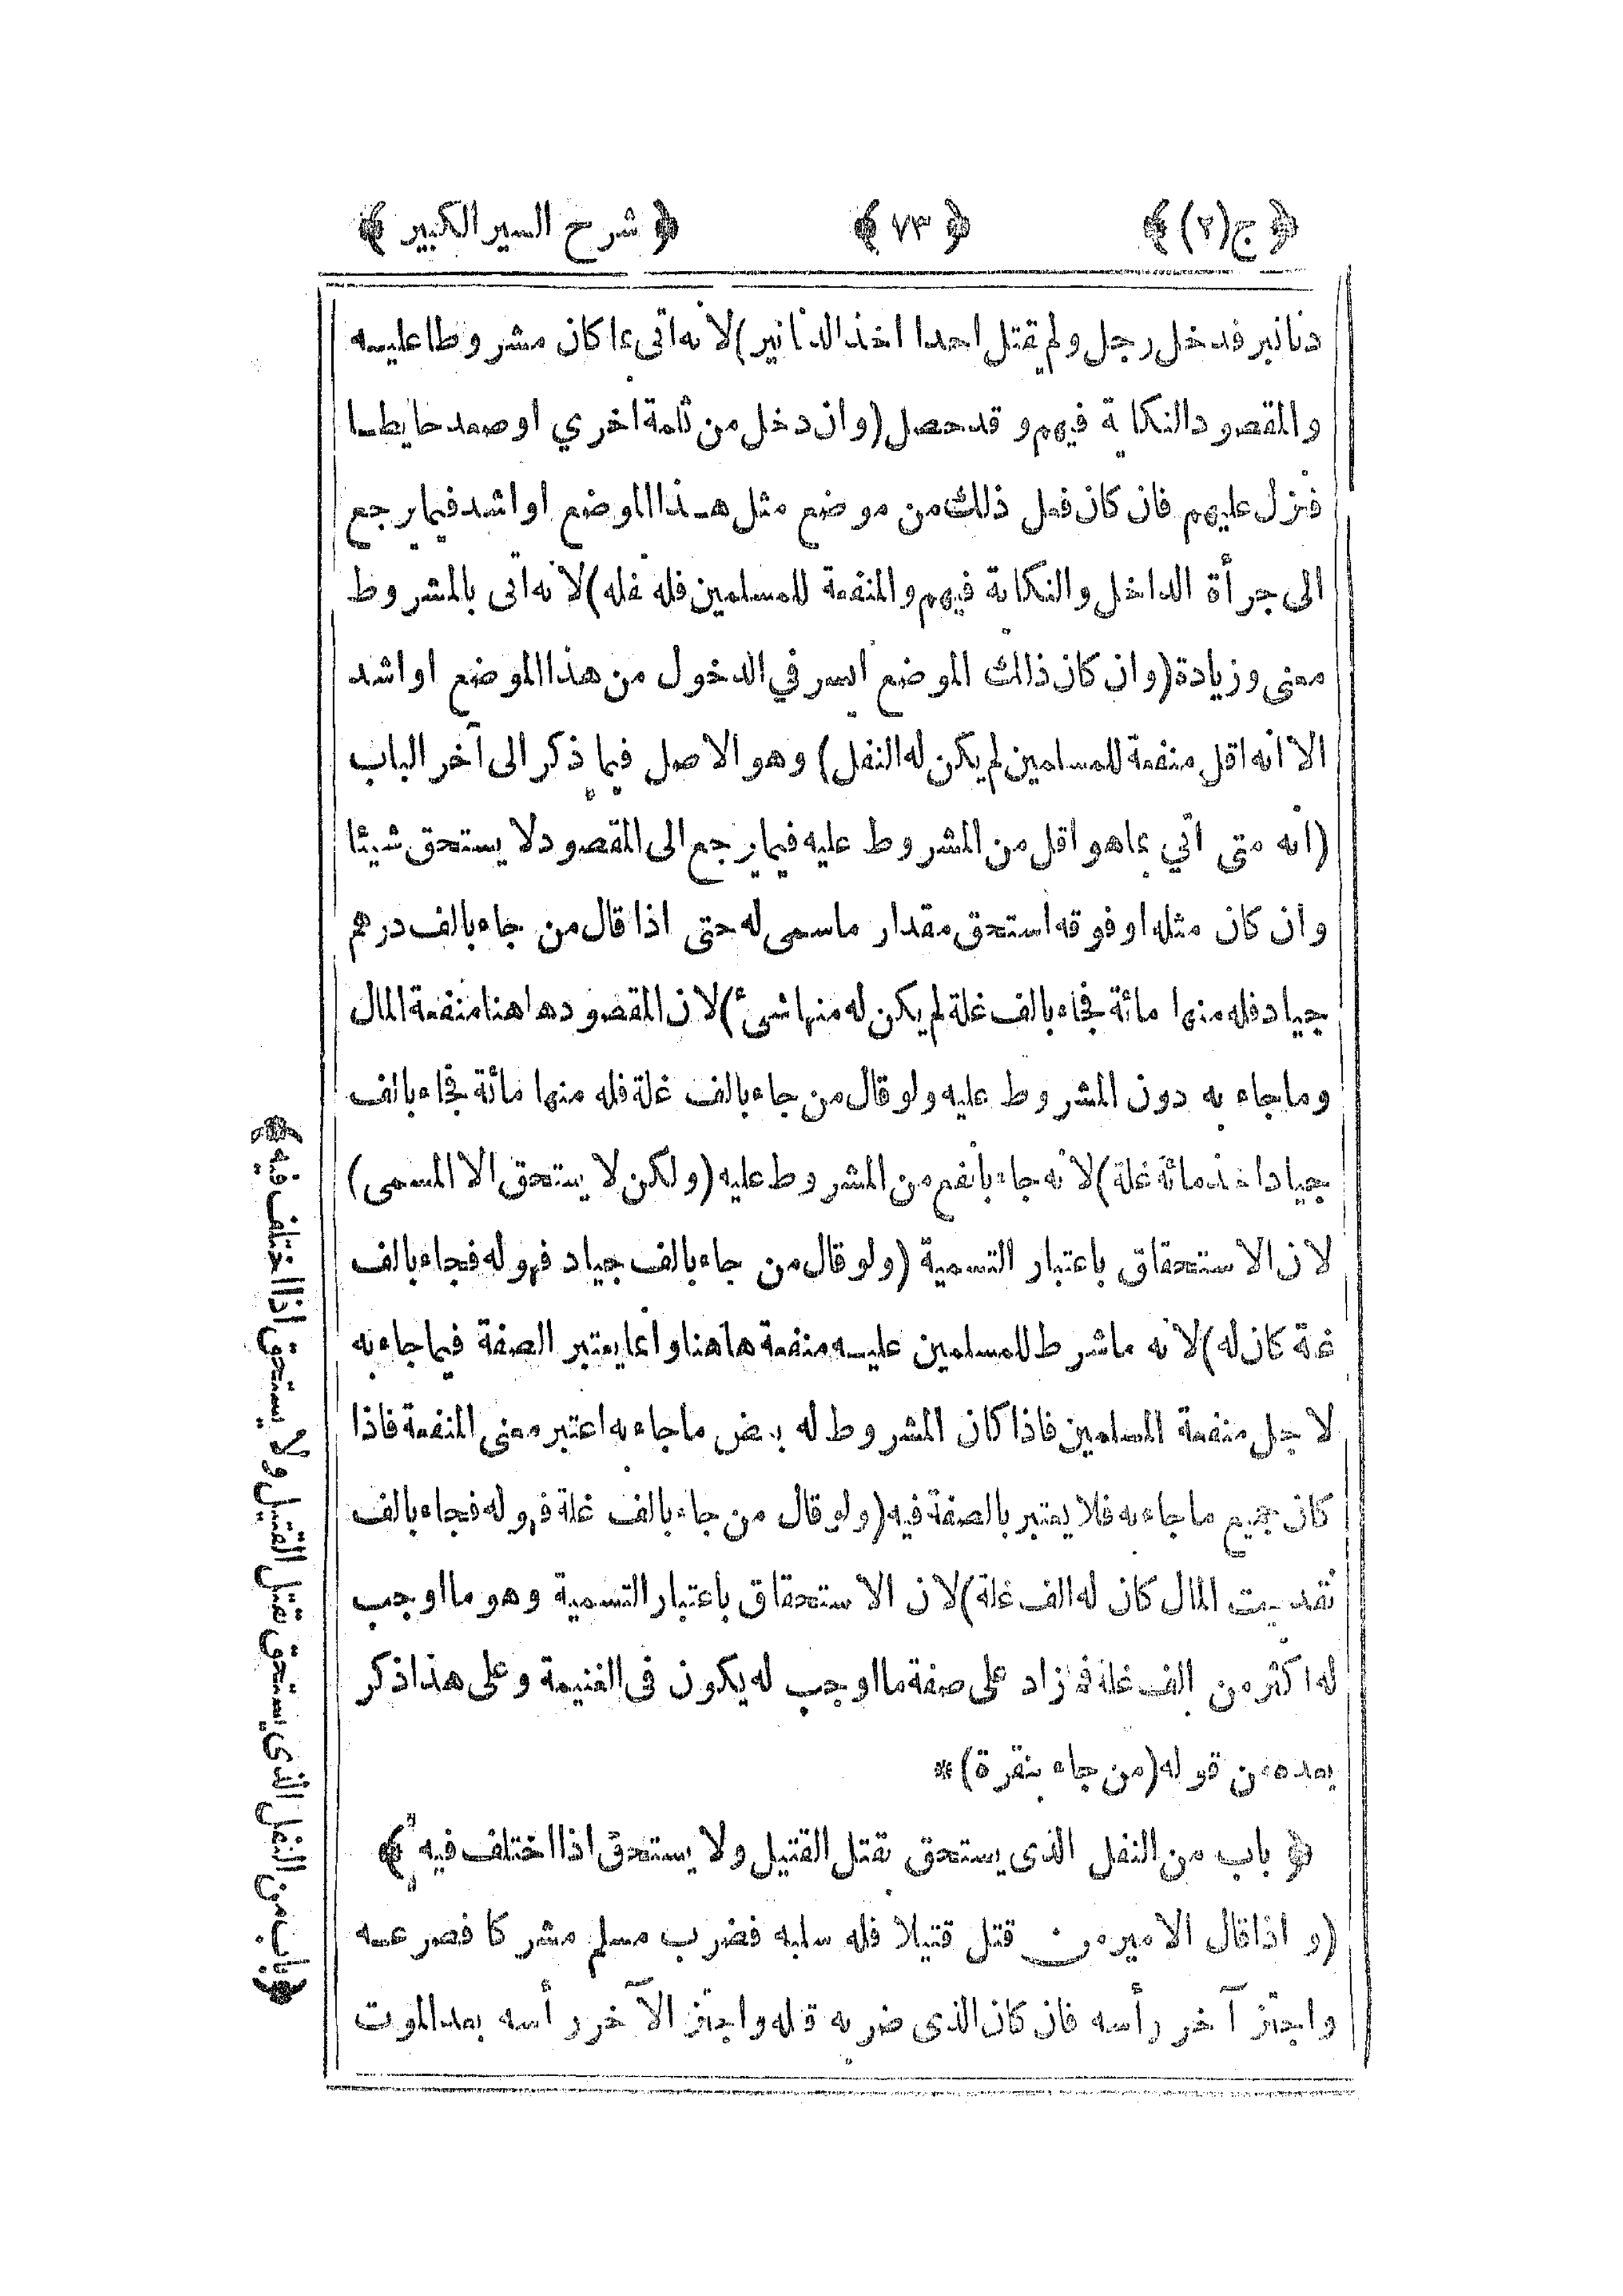 ﴿ج(٢)﴾ ﴿٧٣﴾ ﴿شرح السير الكبير﴾
دنانير فدخل رجل ولم يقتل احدا اخذ الدنانير) لانه اتى بما كان مشروطا عليه
والمقصود النكاية فيهم وقد حصل (وان دخل من ثلمة اخري او صعد حايطا
فنزل عليهم فان كان فعل ذلك من موضع مثل هذا الموضع او اشد فيما يرجع
الى جرأة الداخل والنكاية فيهم والمنفعة للمسلمين فله نفله) لانه اتى بالمشروط
معنى وزيادة (وان كان ذالك الموضع ايسر في الدخول من هذا الموضع او اشد
الا انه اقل منفعة للمسلمين لم يكن له النفل) وهو الاصل فيما ذكر الى آخر الباب
(انه متى اتي بما هو اقل من المشروط عليه فيما يرجع الى المقصود لا يستحق شيئا
وان كان مثله او فوقه استحق مقدار ما سمى له حتى اذا قال من جاء بالف درهم
جياد فله منها مائة فجاء بالف غلة لم يكن له منها شئ) لان المقصود هاهنا منفعة المال
وما جاء به دون المشروط عليه ولو قال من جاء بالف غلة فله منها مائة فجاء بالف
جياد اخذ مائة غلة) لانه جاء بأنفع من المشروط عليه (ولكن لا يستحق الا المسمى)
لان الاستحقاق باعتبار التسمية (ولو قال من جاء بالف جياد فهو له فجاء بالف
غلة كان له) لانه ما شرط للمسلمين عليه منفعة هاهنا وانما يعتبر الصفة فيما جاء به
لاجل منفعة المسلمين فاذا كان المشروط له بعض ما جاء به اعتبر معنى المنفعة فاذا
كان جميع ما جاء به فلا يعتبر بالصفة فيه (ولو قال من جاء بالف غلة فهو له فجاء بالف
نقد بيت المال كان له الف غلة) لان الاستحقاق باعتبار التسمية وهو ما اوجب
له اكثر من الف غلة فما زاد على صفة ما اوجب له يكون فى الغنيمة وعلى هذا ذكر
بعده من قوله (من جاء بنقرة) *
﴿باب من النفل الذى يستحق بقتل القتيل ولا يستحق اذا اختلف فيه﴾
(و اذا قال الامير من قتل قتيلا فله سلبه فضرب مسلم مشركا فصرعه
واجتز آخر رأسه فان كان الذى ضربه قتله واجتز الآخر رأسه بعد الموت
﴿باب من النفل الذى يستحق بقتل القتيل ولا يستحق اذا اختلف فيه﴾